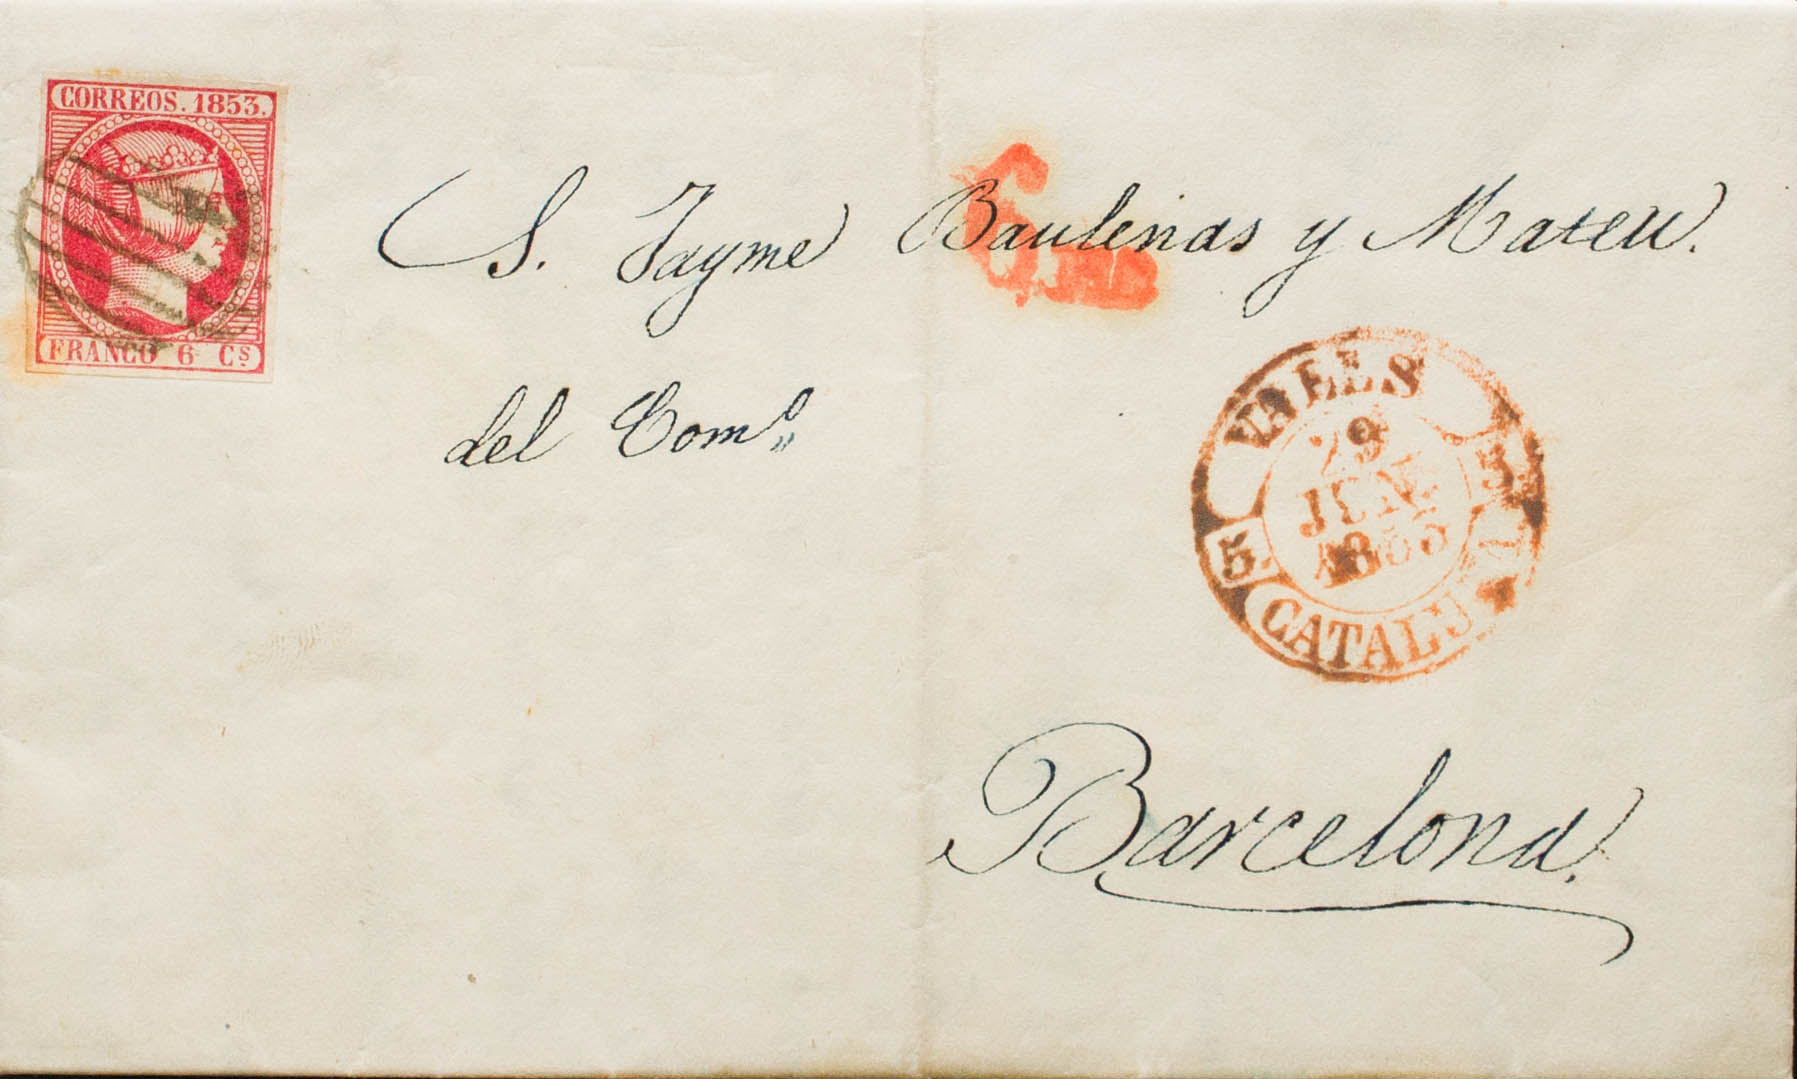 CORREOS. 1853.
FRANCO 6 Cs
S. Jayme Baulenas y Mateu.
del Com.o
VALLS
29
JUN.
1853
5
5
CATALU
Barcelona.